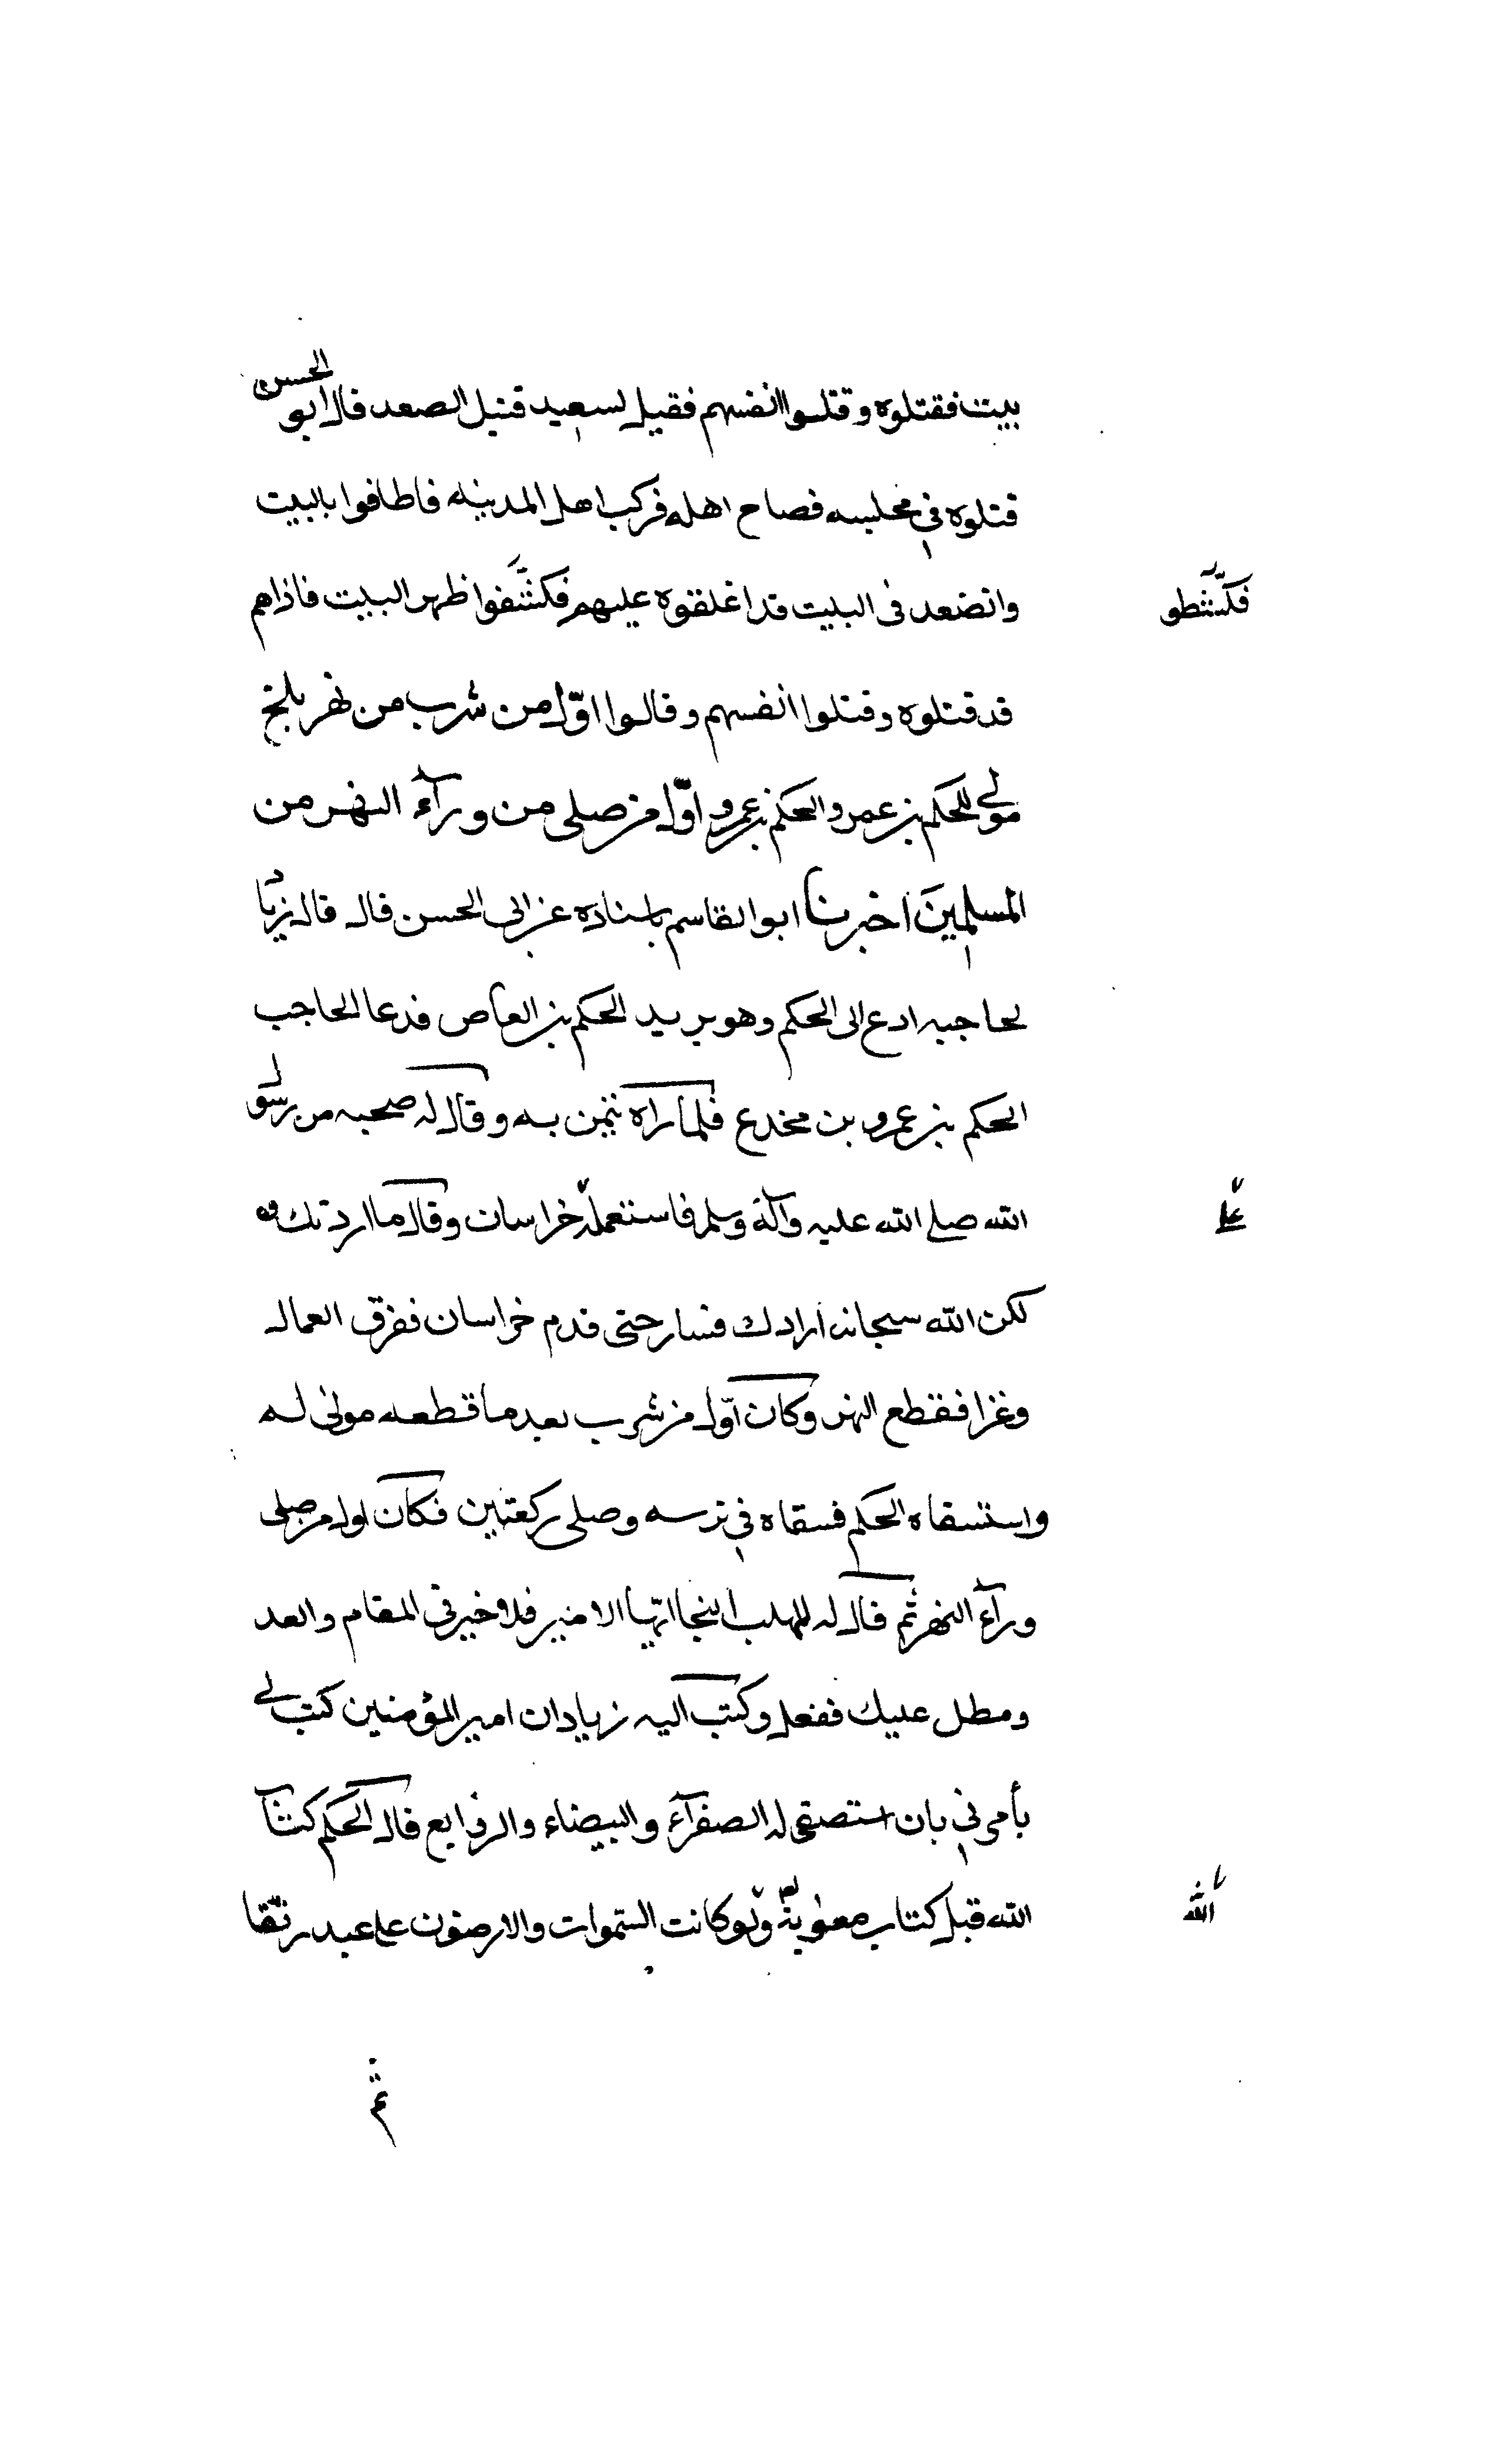 بيت فقتلوه وقتلوا انفسهم فقيل لسعيد قتيل الصعد قال ابو الحسن
قتلوه في مجلسه فصاح اهله فركب اهل المدينه فاطافوا بالبيت
وانصعد في البيت قد اغلقوه عليهم فكشفوا ظهر البيت فاذاهم
فكشطو
قد قتلوه وقتلوا انفسهم وقالوا اوّل من شرب من نهر بلخ
مولى للحكم بن عمرو والحكم بن عمرو اوّل من صلى من ورآء النهر من
المسلمين اخبرنا ابو القاسم باسناده عن ابي الحسن قال قال زياد
لحاجبه ادع الى الحكم وهو يريد الحكم بن العاص فدعا الحاجب
الحكم بن عمرو بن مخدع فلما راه تيمن به وقال له صحبه من رسول
الله صلى الله عليه وآله وسلم فاستعمله خراسان وقال ما اردتك و
على
لكن الله سبحانه ارادك فسار حتى قدم خراسان ففرق العمال
وغزا فقطع النهر وكان اوّل من شرب بعد ما قطعه مولى له
واستسقاه الحكم فسقاه في ترسه وصلى ركعتين فكان اول من صلى
ورآء النهر ثم قال له المهلب النجا ايّها الامير فلا خير في المقام والعد
ومطل عليك ففعل وكتب اليه زياد ان امير المؤمنين كتب لي
يأمرني بان استصفى له الصفرآء والبيضاء والروايع قال الحكم كتاب
الله قبل كتاب معوية ولو كانت السّموات والارضون على عبد رتقا
الله
ثم